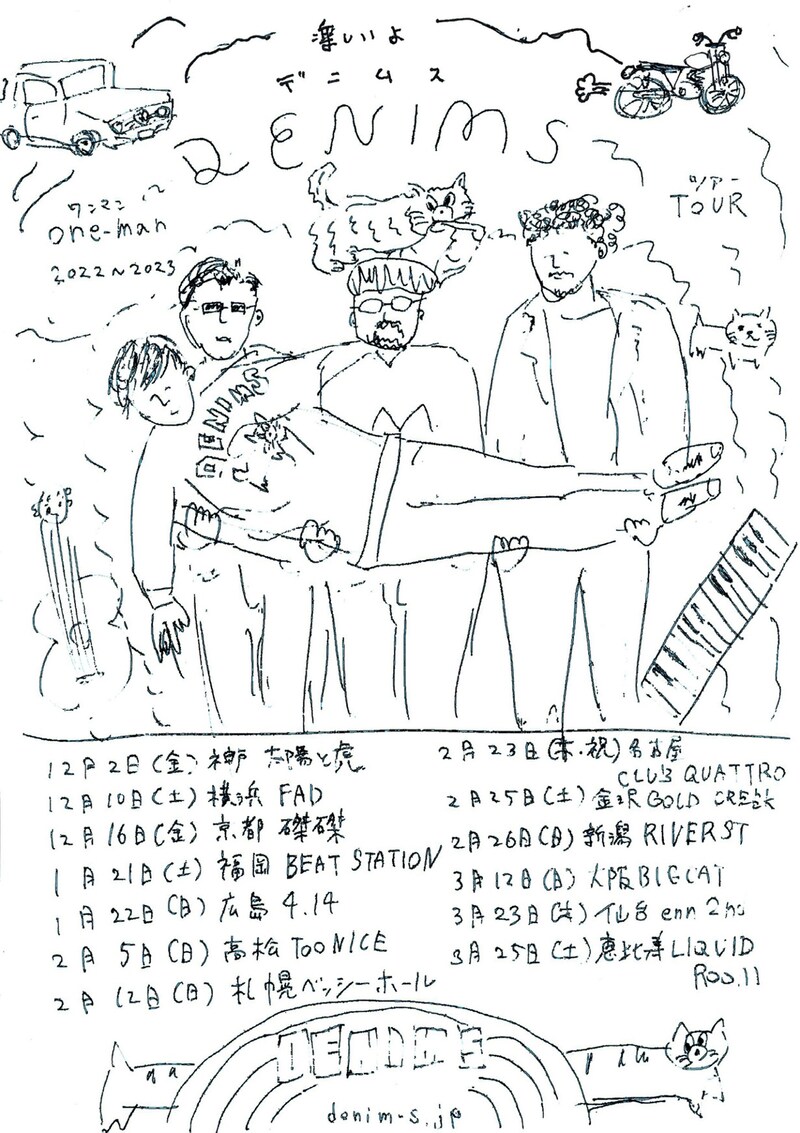 凄いよ
デニムス
DENIMS
ワンマン
one-man
2022~2023
ツアー
TOUR
DENIMS
12月2日(金)神戸 太陽と虎
12月10日(土)横浜 FAD
12月16日(金)京都 磔磔
1月21日(土)福岡 BEAT STATION
1月22日(日)広島 4.14
2月5日(日)高松 TOONICE
2月12日(日)札幌ベッシーホール
2月23日(木・祝)名古屋
CLUB QUATTRO
2月25日(土)金沢 GOLD CREEK
2月26日(日)新潟 RIVERST
3月12日(日)大阪BIGCAT
3月23日(木)仙台 enn 2nd
3月25日(土)恵比寿LIQUID
ROOM
DENIMS
denim-s.jp